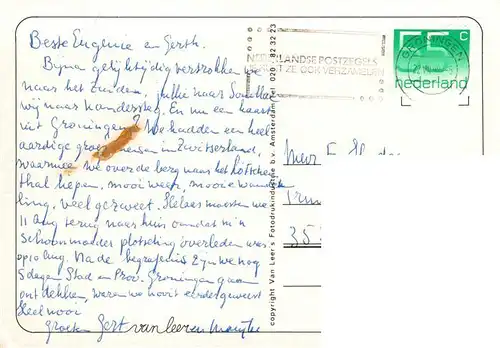 Beste Eugenie en Gerth.
Bijna gelijktijdig vertrokken we
naar het zuiden, jullie naar
wij naar Kandersteg. En nu een kaart
uit Groningen? We hadden een heel
aardige groep mensen in Zwitserland,
waarmee we over de berg naar het Lötschen
thal liepen, mooi weer, mooie wande
ling, veel gezweet. Helaas moesten we
11 Aug terug naar huis omdat m'n
schoonmoeder plotseling overleden was
op 10 aug. Na de begrafenis zijn we nog
5 dagen Stad en Prov. Groningen gaan
ontdekken, waren we nooit eerder geweest
Heel mooi
groeten Gert van Leer en
copyright Van Leer's Fotodrukindustrie b.v. Amsterdam Tel 020 - 82 32 23
NEDERLANDSE POSTZEGELS
ZE OOK VERZAMELEN
GRONINGEN
55 c
nederland
35